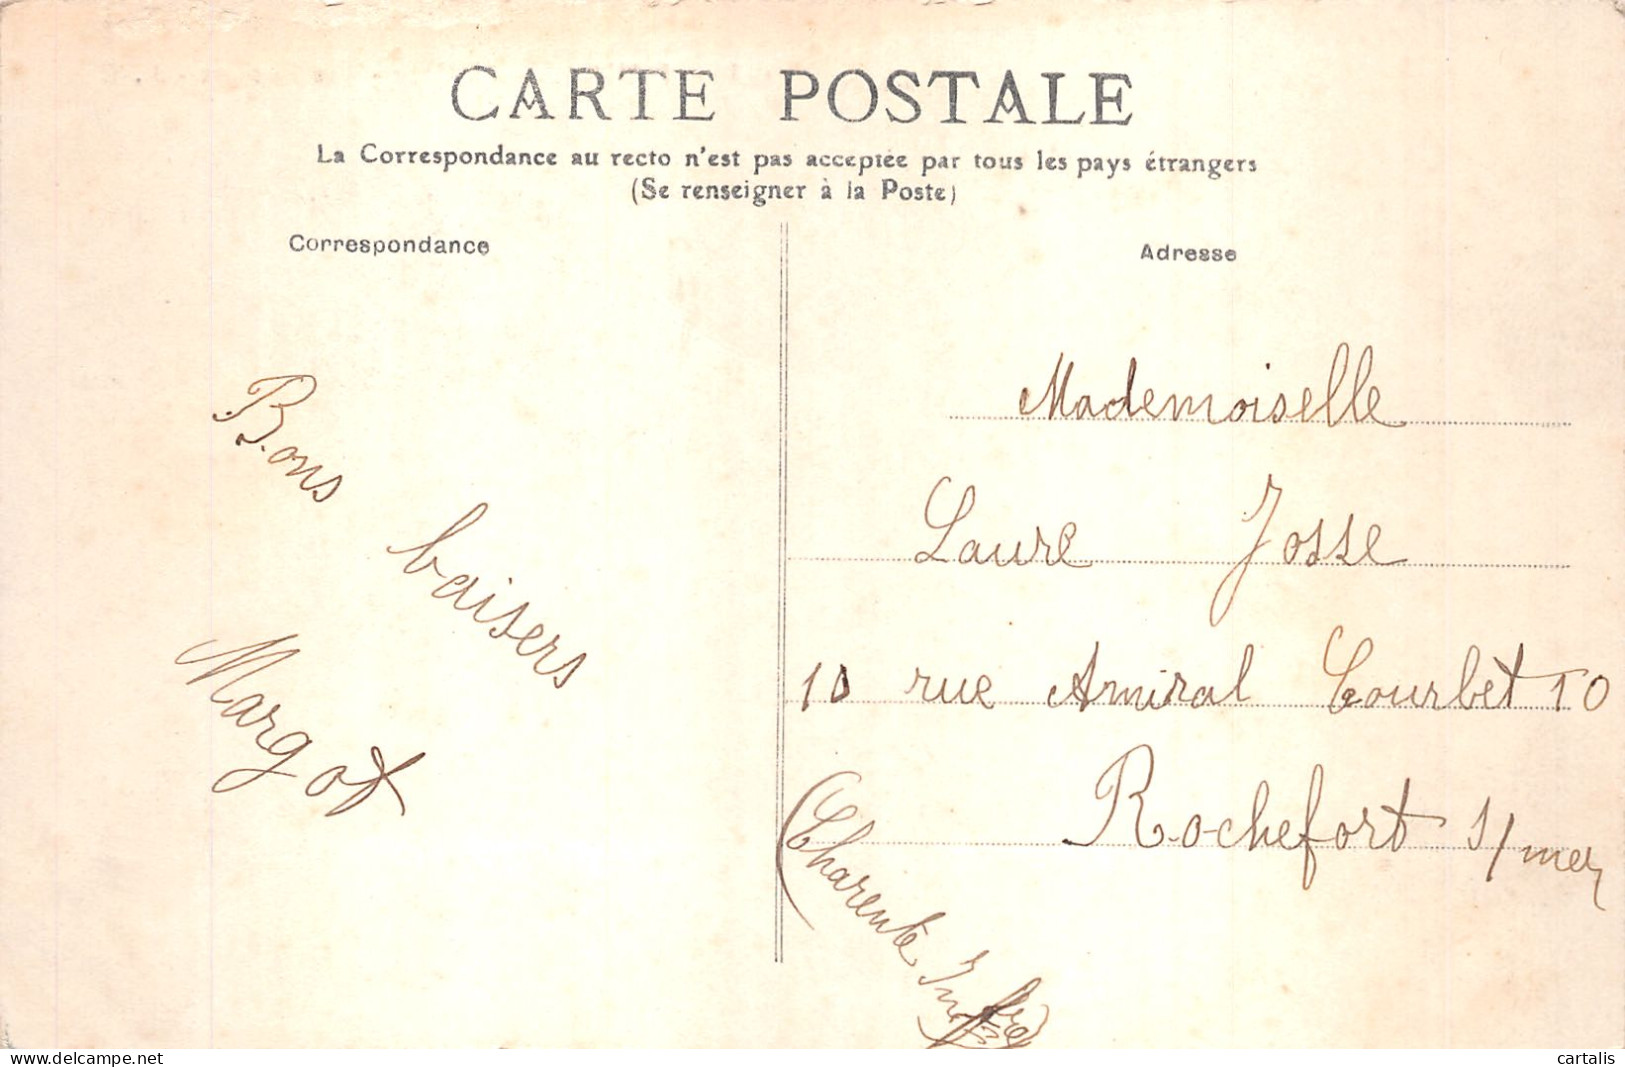 CARTE POSTALE
La Correspondance au recto n'est pas acceptée par tous les pays étrangers
(Se renseigner à la Poste)
Correspondance
Bons baisers
Margot
Adresse
Mademoiselle
Laure Josse
10 rue Amiral Courbet 10
Rochefort s/mer
(Charente Infre)
delcampe.net
cartalis